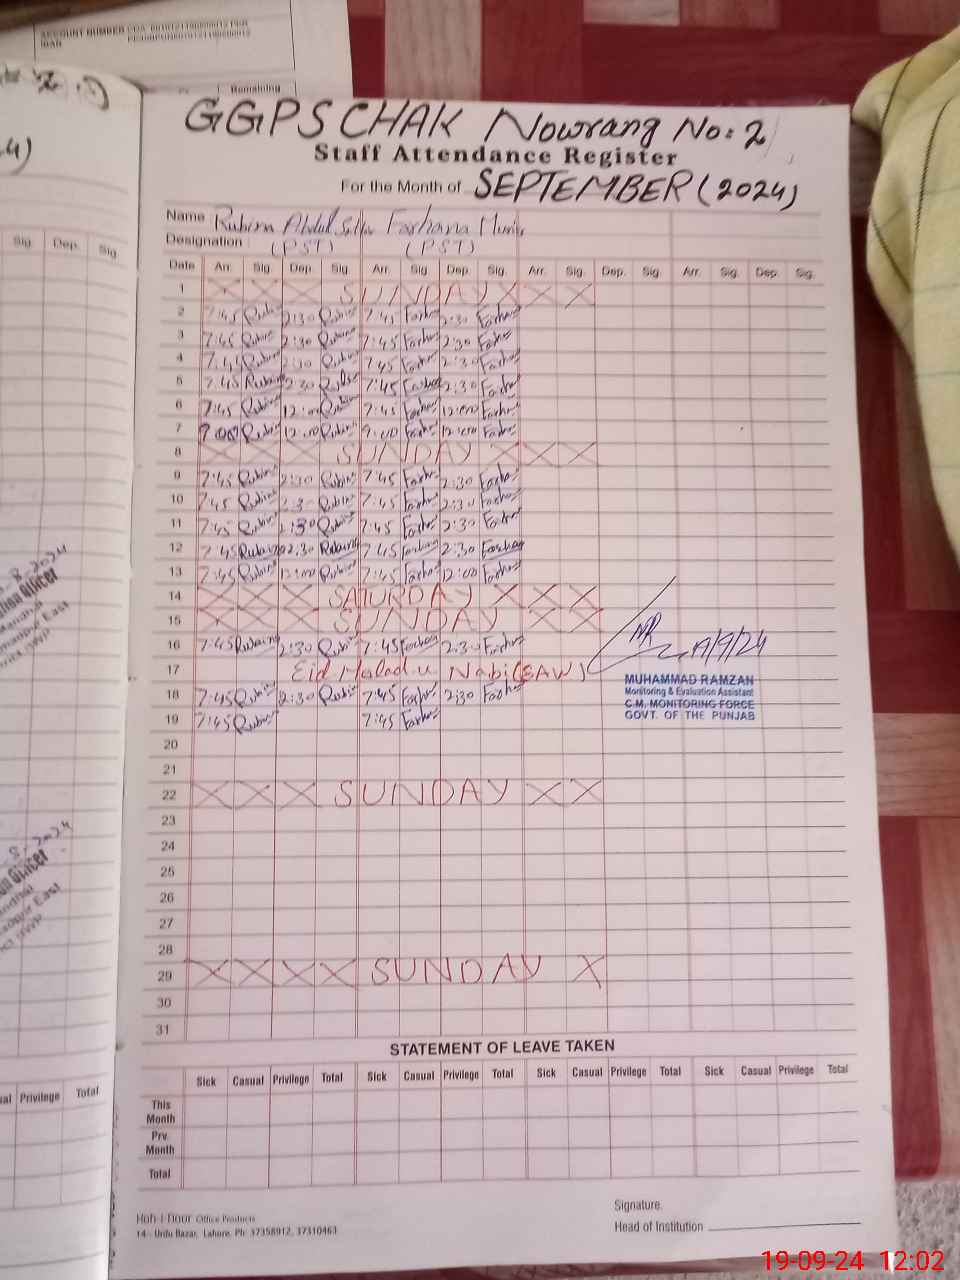 ACCOUNT NUMBER
IBAN
Remaining
GGPS CHAK Nowrang No: 2
Staff Attendance Register
For the Month of SEPTEMBER (2024)
Name Rubina Abdul Farhana Munir
Designation (PST) (PST)
Date Arr. Sig. Dep. Sig. Arr. Sig. Dep. Sig. Arr. Sig. Dep. Sig. Arr. Sig. Dep. Sig.
1 X X X SUNDAY X X X
2 7:45 Rubina 2:30 Rubina 7:45 Farhana 2:30 Farhana
3 7:45 Rubina 2:30 Rubina 7:45 Farhana 2:30 Farhana
4 Rubina 2:30 Rubina 7:45 Farhana 2:30 Farhana
5 7:45 Rubina 2:30 Rubina 7:45 Farhana 2:30 Farhana
6 7:45 Rubina 12:00 Rubina 7:45 Farhana 12:00 Farhana
7 9:00 Rubina 12:00 Rubina 9:00 Farhana 12:00 Farhana
8 X X X SUNDAY X X X
9 7:45 Rubina 2:30 Rubina 7:45 Farhana 2:30 Farhana
10 7:45 Rubina 2:30 Rubina 7:45 Farhana 2:30 Farhana
11 7:45 Rubina 2:30 Rubina 7:45 Farhana 2:30 Farhana
12 7:45 Rubina 02:30 Rubina 7:45 Farhana 2:30 Farhana
13 7:45 Rubina 12:00 Rubina 7:45 Farhana 12:00 Farhana
14 X X X SATURDAY X X X
15 X X X SUNDAY X X
16 7:45 Rubina 2:30 Rubina 7:45 Farhana 2:30 Farhana
17 Eid Malad-u-Nabi (SAW)
18 7:45 Rubina 2:30 Rubina 7:45 Farhana 2:30 Farhana
19 7:45 Rubina 7:45 Farhana
MR 19/9/24
MUHAMMAD RAMZAN
Monitoring & Evaluation Assistant
C.M. MONITORING FORCE
GOVT. OF THE PUNJAB
20
21
22 X X X SUNDAY X X
23
24
25
26
27
28
29 X X X X SUNDAY X
30
31
STATEMENT OF LEAVE TAKEN
Sick Casual Privilege Total Sick Casual Privilege Total Sick Casual Privilege Total Sick Casual Privilege Total
This Month
Prv. Month
Total
Signature.
Head of Institution
Office Products
14 - Urdu Bazar, Lahore. Ph: 37358912, 37310463
Sig. Dep. Sig
Privilege Total
19-09-24 12:02